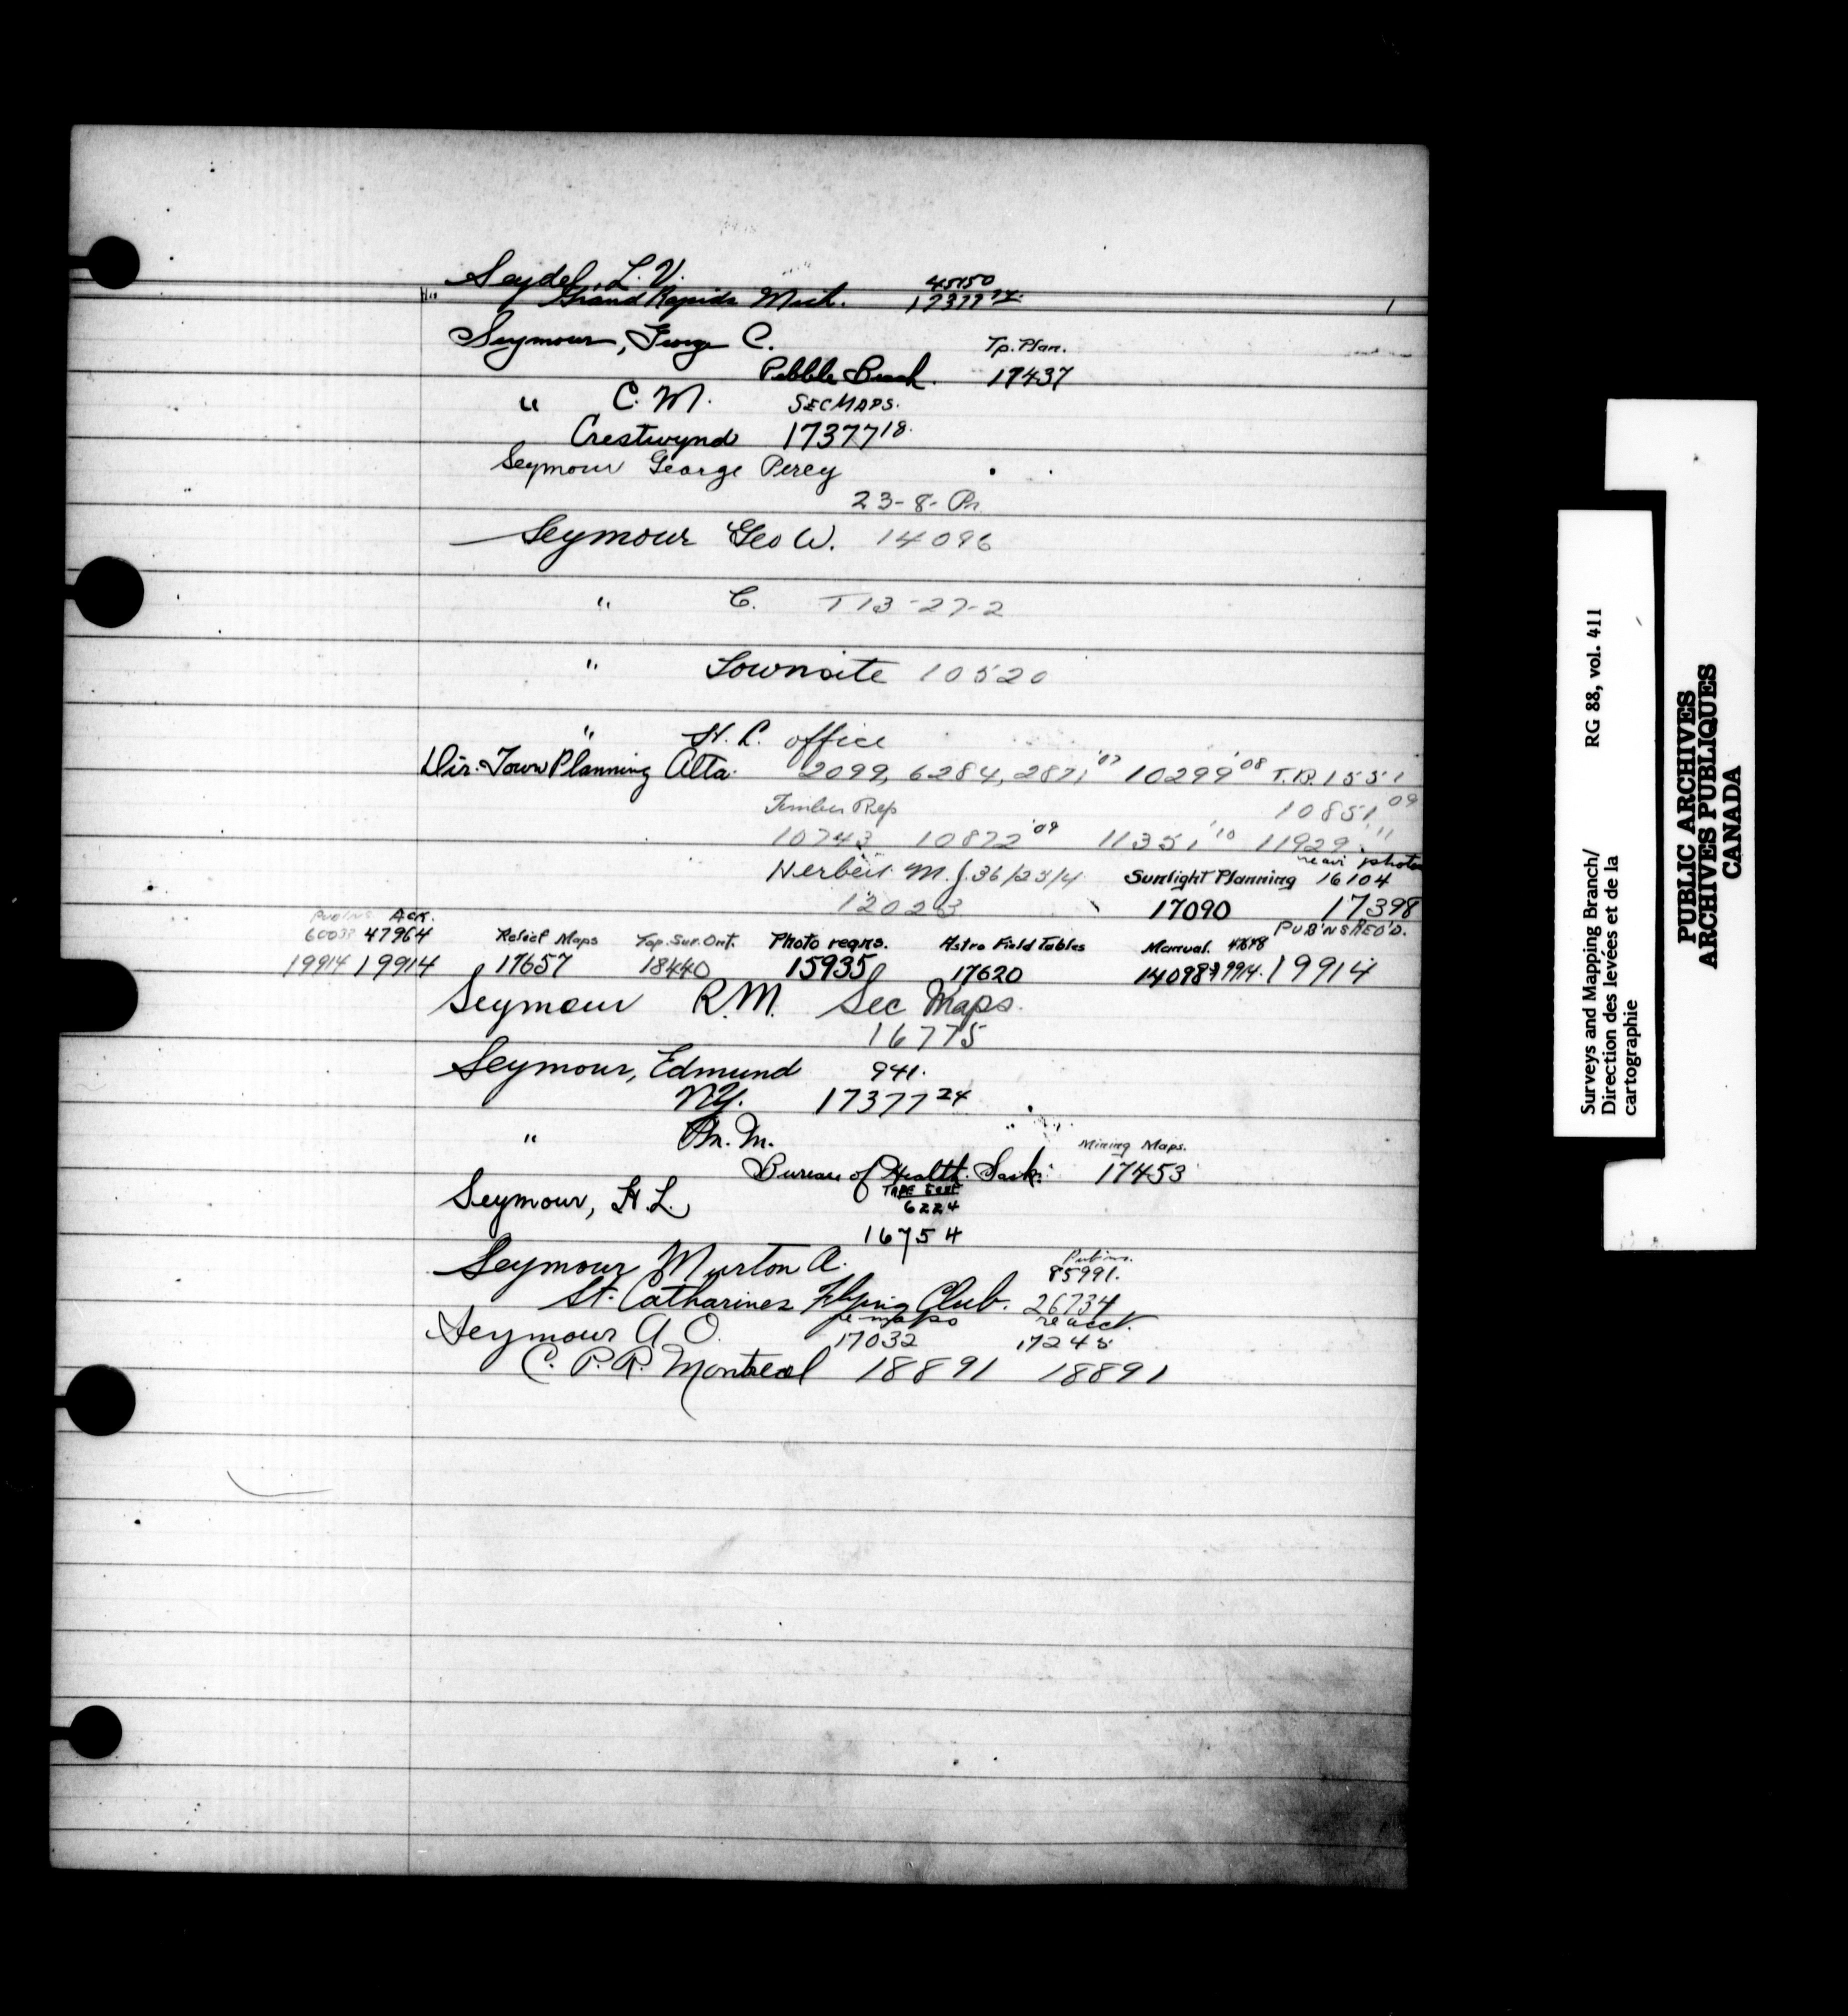 Seydel, L. V. 45750
Grand Rapids Mich. 17377 24.
Seymour, George C. Tp. Plan.
Pebble Beach. 17437
" C. M. SEC MAPS.
Crestwynd 17377 18.
Seymour George Percy
23-8-Pr.
Seymour Geo W. 14096
" C. T 13-27-2
" Townsite 10520
" H. L. office
Dir. Town Planning Alta. 2099, 6284, 2871 '07 10299 '08 T.B. 1551
Timber Rep 10851 09
10743 10872 '09 11351 '10 11929 '11
Herbert M. J. 36/23/4 Sunlight Planning 16104 photos
12023 17090 17398
PUB'NS ACK. PUB'NS REQ'D.
60038 47964 Relief Maps Top. Sur. Ont. Photo reqns. Astro Field Tables Manual.
19914 19914 17657 18440 15935 17620 14098 19914. 19914
Seymour R. M. Sec Maps.
16775
Seymour, Edmund 941.
N.Y. 17377 24
" M. M. Mining Maps.
Bureau of Health. Sask. 17453
Seymour, H. L. TAPE test
6224
16754
Seymour Murton A. Pub'ns.
85991.
St. Catharines Flying Club. 26734
Seymour A O. re maps re acct.
17032 17245
C. P. R. Montreal 18891 18891
Surveys and Mapping Branch/ RG 88, vol. 411
Direction des levées et de la
cartographie
PUBLIC ARCHIVES
ARCHIVES PUBLIQUES
CANADA